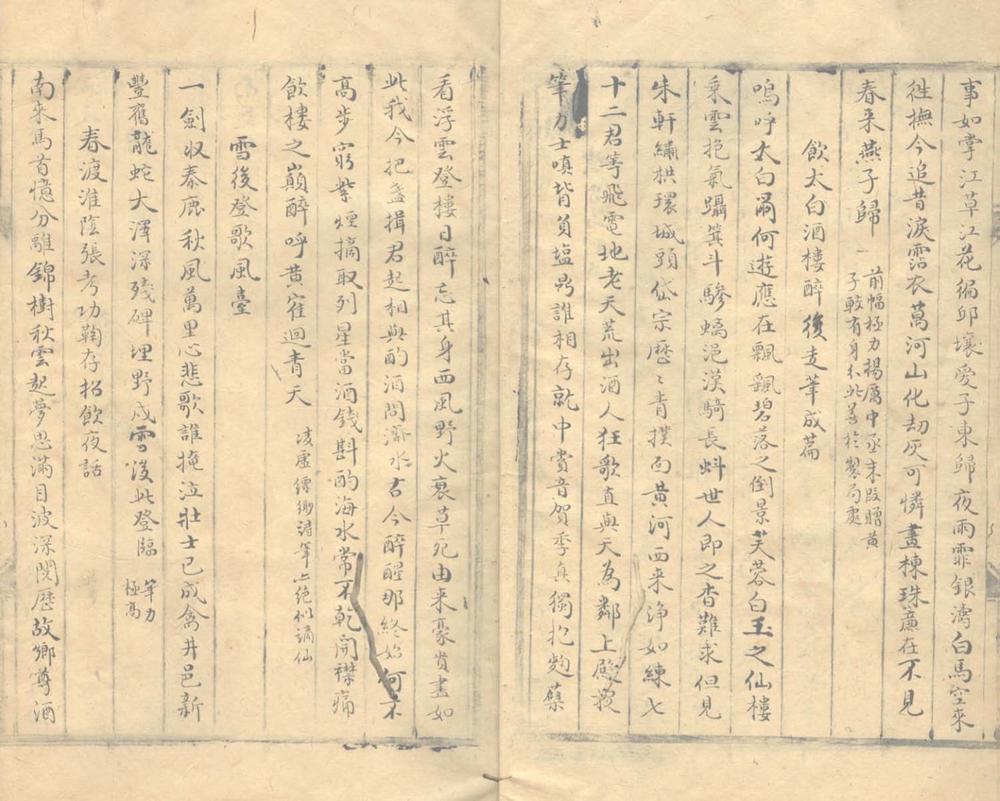 事如掌江草江花徧邱壤愛子東歸夜雨霏銀濤白馬空來
徃撫今追昔淚霑衣萬河山化劫灰可憐畫棟珠簾在不見
春來燕子歸
前幅極力揚厲中丞末段贈黃
子較有身不此善於製局處
飲太白酒樓醉後走筆成篇
嗚呼太白爾何遊應在飄飄碧落之倒景芙蓉白玉之仙樓
乘雲抱氣躡箕斗驂螭浥漢騎長蚪世人即之杳難求但見
朱軒繡栱環城頭岱宗歷〻青撲面黃河西来淨如練七
十二君等飛電地老天荒出酒人狂歌直與天為鄰上殿
筆力士嗔背負塩曷誰相存就中賞音賀季真獨抱麴蘖
看浮雲登樓日醉忘其身西風野火衰草死由来豪賞盡如
此我今把盞揖君起相與酌酒問濟水古今醉醒那終始何不
高步窮紫煙摘取列星當酒錢斟酌海水常不乾開襟痛
飲樓之巔醉呼黃寉迴青天
凌虛縹緲清筆亦絕似謫仙
雪後登歌風臺
一劍收秦鹿秋風萬里心悲歌誰掩泣壯士已成禽井邑新
豐舊龍蛇大澤深殘碑埋野戍雪後此登臨
筆力
極高
春渡淮陰張考功鞠存招飲夜話
南來馬首憶分離錦樹秋雲起夢思滿目波深閱歷故鄉尊酒